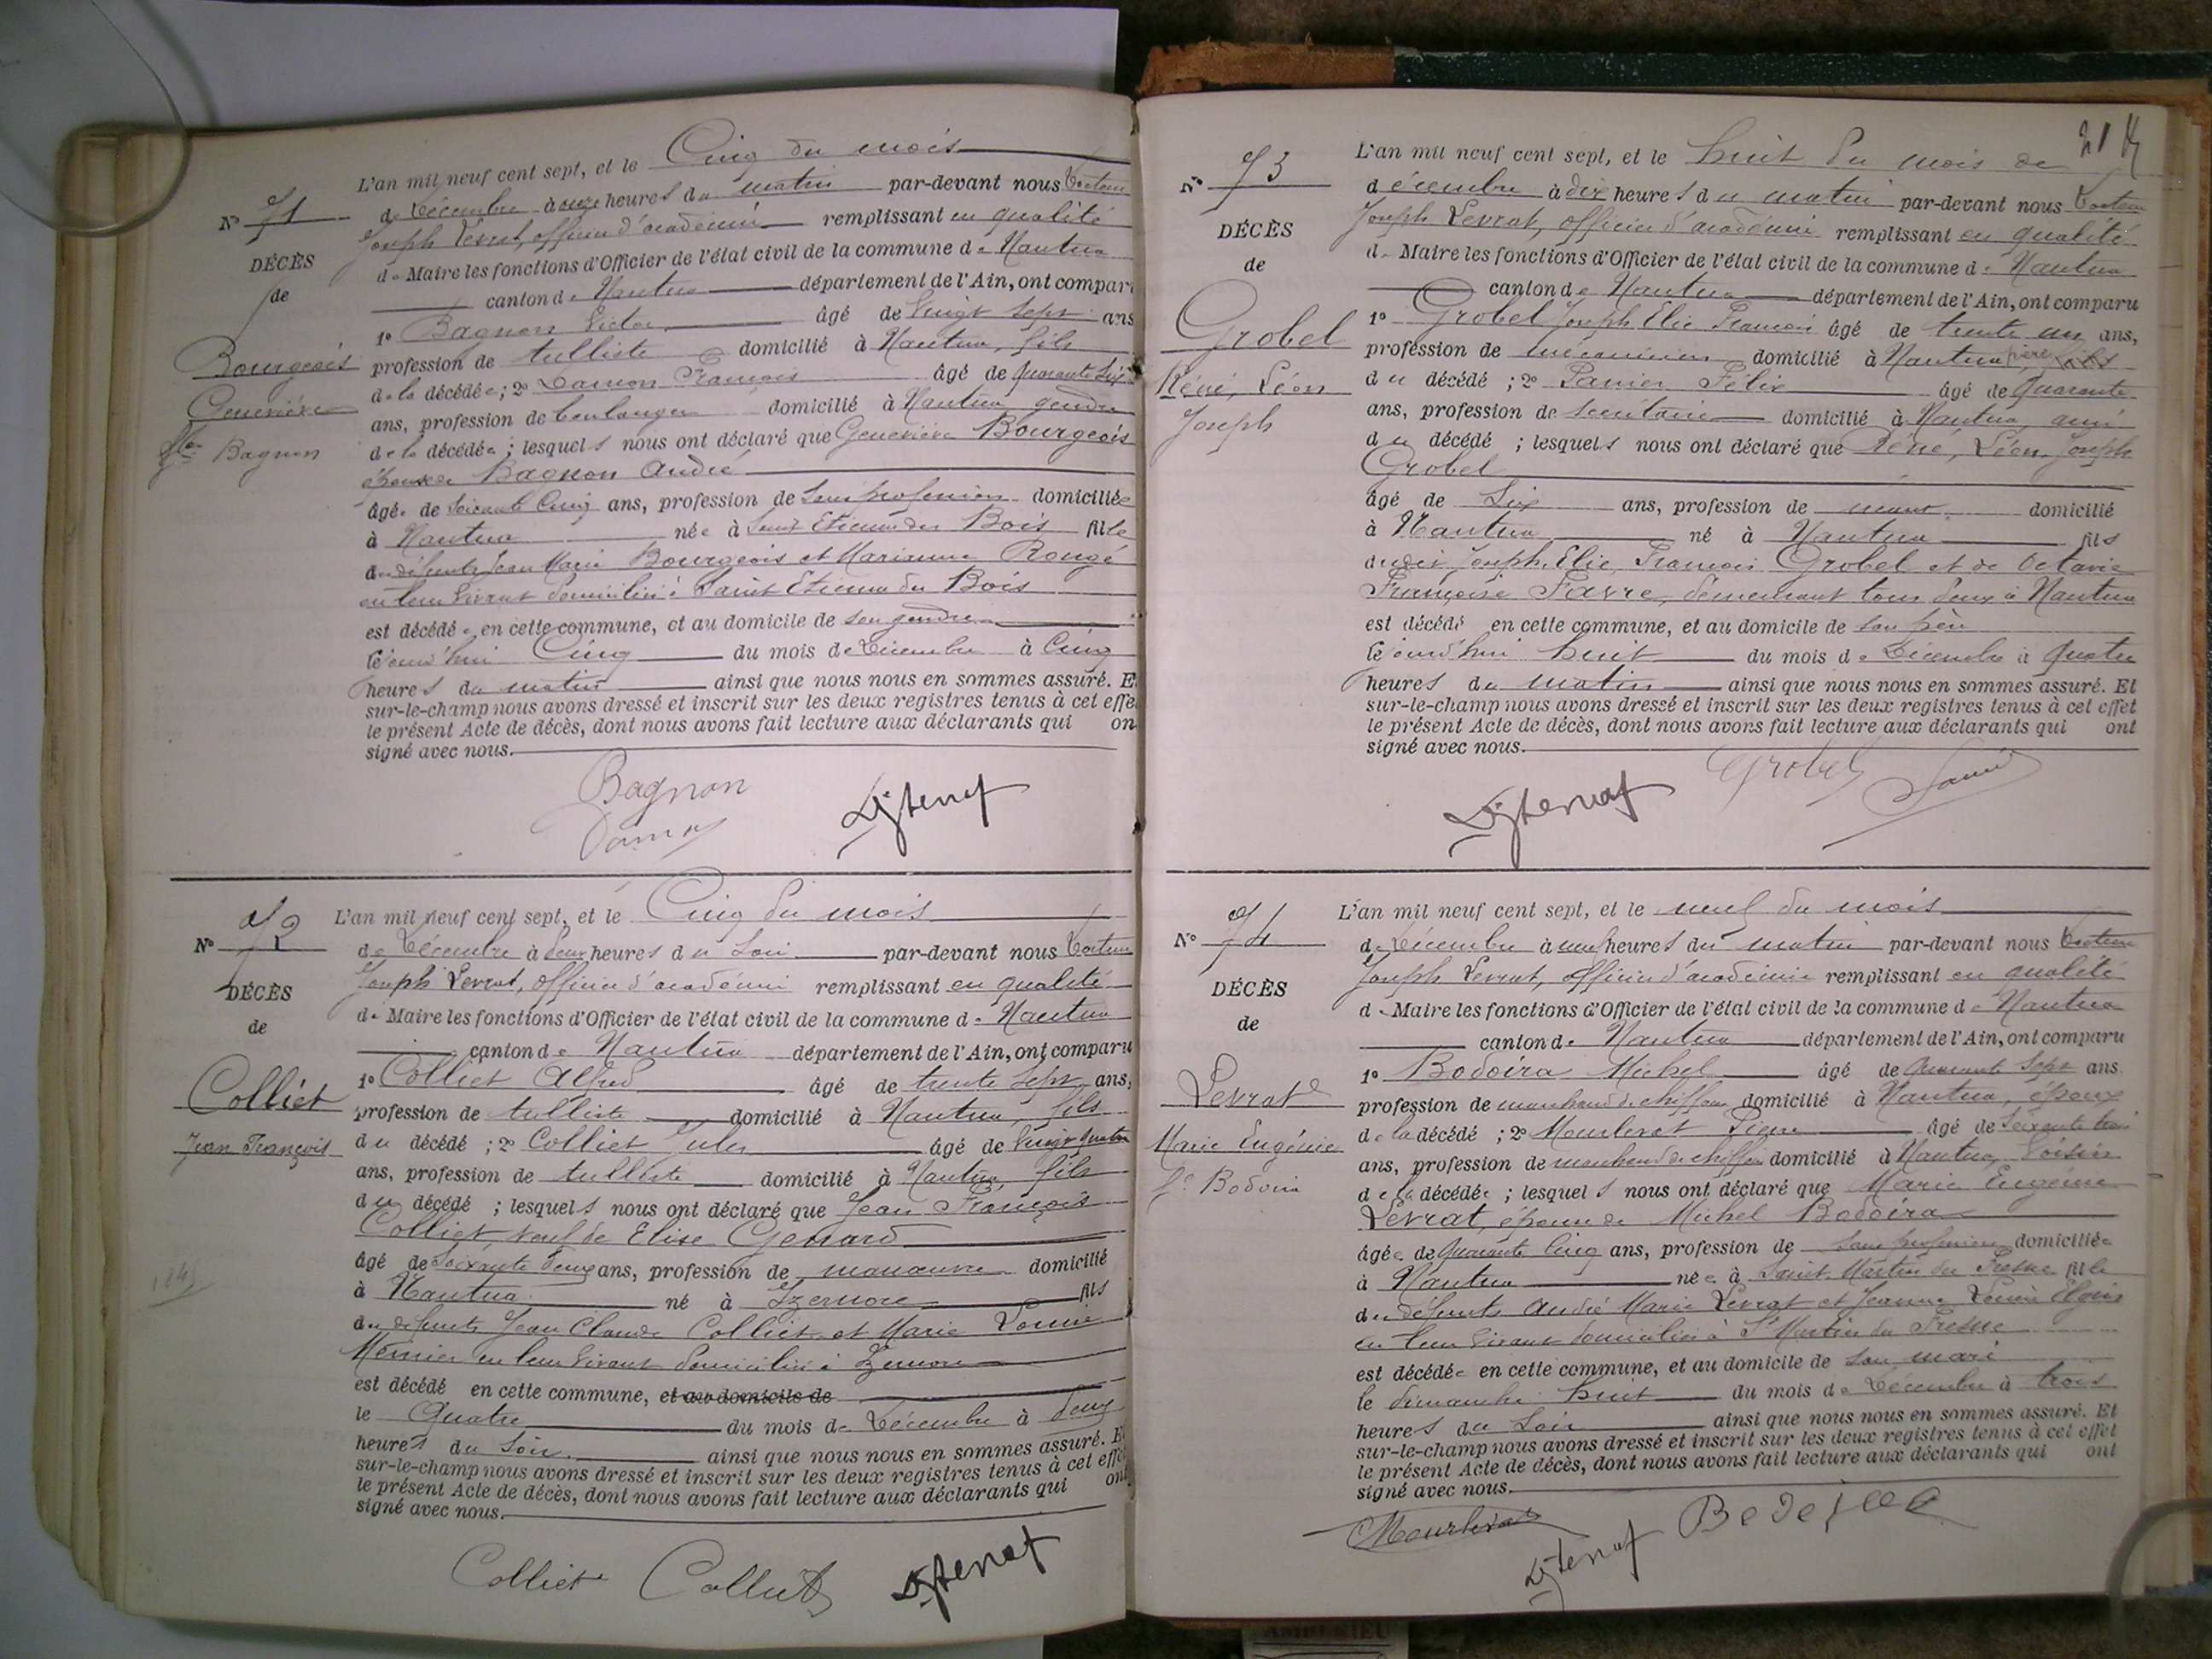 N° 71
DÉCÈS
de
Bourgeois
Geneviève
Bagnon
L'an mil neuf cent sept, et le Cinq du mois
de Décembre à onze heures du matin par-devant nous Docteur
Joseph Levrat, officier d'académie remplissant en qualité
de Maire les fonctions d'Officier de l'état civil de la commune de Nantua
canton de Nantua département de l'Ain, ont compar
1° Bagnon Victor âgé de Vingt Sept ans
profession de tulliste domicilié à Nantua, fils
de la décédée ; 2° Damon François âgé de quarante six
ans, profession de boulanger domicilié à Nantua gendre
de la décédée ; lesquels nous ont déclaré que Geneviève Bourgeois
épouse de Bagnon André
âgée de Soixante Cinq ans, profession de Sans profession domiciliée
à Nantua née à Saint Etienne du Bois fille
de défunts Jean Marie Bourgeois et Marianne Rougé
en leur vivant domiciliés à Saint Etienne du Bois
est décédée en cette commune, et au domicile de son gendre
cejourd'hui Cinq du mois de Décembre à Cinq
heures du matin ainsi que nous nous en sommes assuré. E
sur-le-champ nous avons dressé et inscrit sur les deux registres tenus à cet effe
le présent Acte de décès, dont nous avons fait lecture aux déclarants qui on
signé avec nous.
Bagnon
N° 72
DÉCÈS
de
Colliet
Jean François
L'an mil neuf cent sept, et le Cinq du mois
de Décembre à deux heures du Soir par-devant nous Docteur
Joseph Levrat, officier d'académie remplissant en qualité
de Maire les fonctions d'Officier de l'état civil de la commune de Nantua
canton de Nantua département de l'Ain, ont comparu
1° Colliet Alfred âgé de trente sept ans,
profession de tulliste domicilié à Nantua, fils
du décédé ; 2° Colliet Jules âgé de Vingt quatre
ans, profession de tulliste domicilié à Nantua, fils
du décédé ; lesquels nous ont déclaré que Jean François
Colliet, veuf de Elise Genard
âgé de Soixante deux ans, profession de manœuvre domicilié
à Nantua né à Izernore fils
de défunts Jean Claude Colliet et Marie Louise
Mermier en leur vivant domiciliés à Izernore
est décédé en cette commune, et au domicile de
le Quatre du mois de Décembre à deux
heures du Soir ainsi que nous nous en sommes assuré. E
sur-le-champ nous avons dressé et inscrit sur les deux registres tenus à cet effe
le présent Acte de décès, dont nous avons fait lecture aux déclarants qui ont
signé avec nous.
Colliet Colliet
21
N° 73
DÉCÈS
de
Grobel
Réné, Léon
Joseph
L'an mil neuf cent sept, et le huit du mois de
décembre à dix heures du matin par-devant nous Docteur
Joseph Levrat, officier d'académie remplissant en qualité
de Maire les fonctions d'Officier de l'état civil de la commune de Nantua
canton de Nantua département de l'Ain, ont comparu
1° Grobel Joseph Elie François âgé de trente un ans,
profession de mécanicien domicilié à Nantua, père
du décédé ; 2° Panier Félix âgé de Quarante
ans, profession de Secrétaire domicilié à Nantua, ami
du décédé ; lesquels nous ont déclaré que Réné, Léon, Joseph
Grobel
âgé de Six ans, profession de néant domicilié
à Nantua né à Nantua fils
dudit Joseph, Elie, François Grobel et de Octavie
Françoise Favre, demeurant tous deux à Nantua
est décédé en cette commune, et au domicile de son père
cejourd'hui huit du mois de Décembre à Quatre
heures du matin ainsi que nous nous en sommes assuré. Et
sur-le-champ nous avons dressé et inscrit sur les deux registres tenus à cet effet
le présent Acte de décès, dont nous avons fait lecture aux déclarants qui ont
signé avec nous.
Grobel
N° 74
DÉCÈS
de
Levrat
Marie Eugénie
L'an mil neuf cent sept, et le neuf du mois
de Décembre à neuf heures du matin par-devant nous Docteur
Joseph Levrat, officier d'académie remplissant en qualité
de Maire les fonctions d'Officier de l'état civil de la commune de Nantua
canton de Nantua département de l'Ain, ont comparu
1° Bodoira Michel âgé de Quarante Sept ans
profession de marchand de chiffons domicilié à Nantua, époux
de la décédé ; 2° Mourlevat Pierre âgé de Soixante trois
ans, profession de marchand de chiffons domicilié à Nantua, Voisin
de la décédée ; lesquels nous ont déclaré que Marie Eugénie
Levrat, épouse de Michel Bodoira
âgée de Quarante Cinq ans, profession de Sans profession domiciliée
à Nantua née à Saint Martin du Fresne fille
de défunts André Marie Levrat et Jeanne Louise
en leur vivant domiciliés à St Martin du Fresne
est décédée en cette commune, et au domicile de son mari
le dimanche huit du mois de Décembre à trois
heures du Soir ainsi que nous nous en sommes assuré. Et
sur-le-champ nous avons dressé et inscrit sur les deux registres tenus à cet effet
le présent Acte de décès, dont nous avons fait lecture aux déclarants qui ont
signé avec nous.
Mourlevat